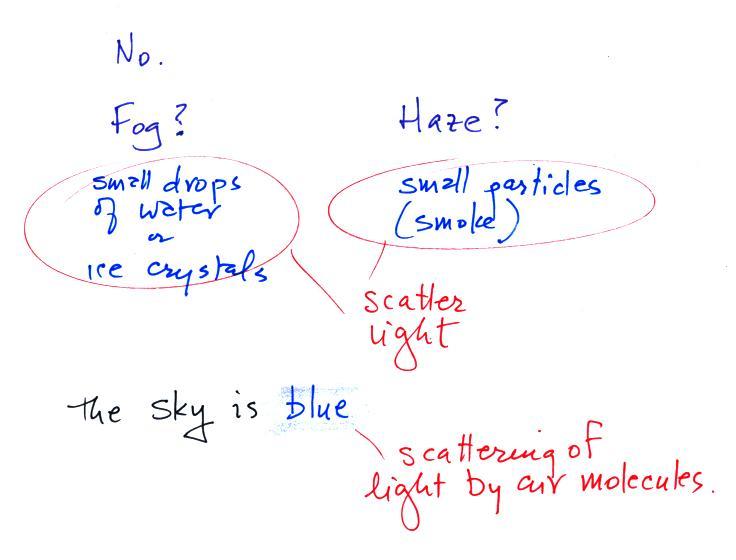 No.
Fog?
small drops
of water
or
ice crystals
Haze?
small particles
(smoke)
scatter
light
the sky is blue
scattering of
light by air molecules.